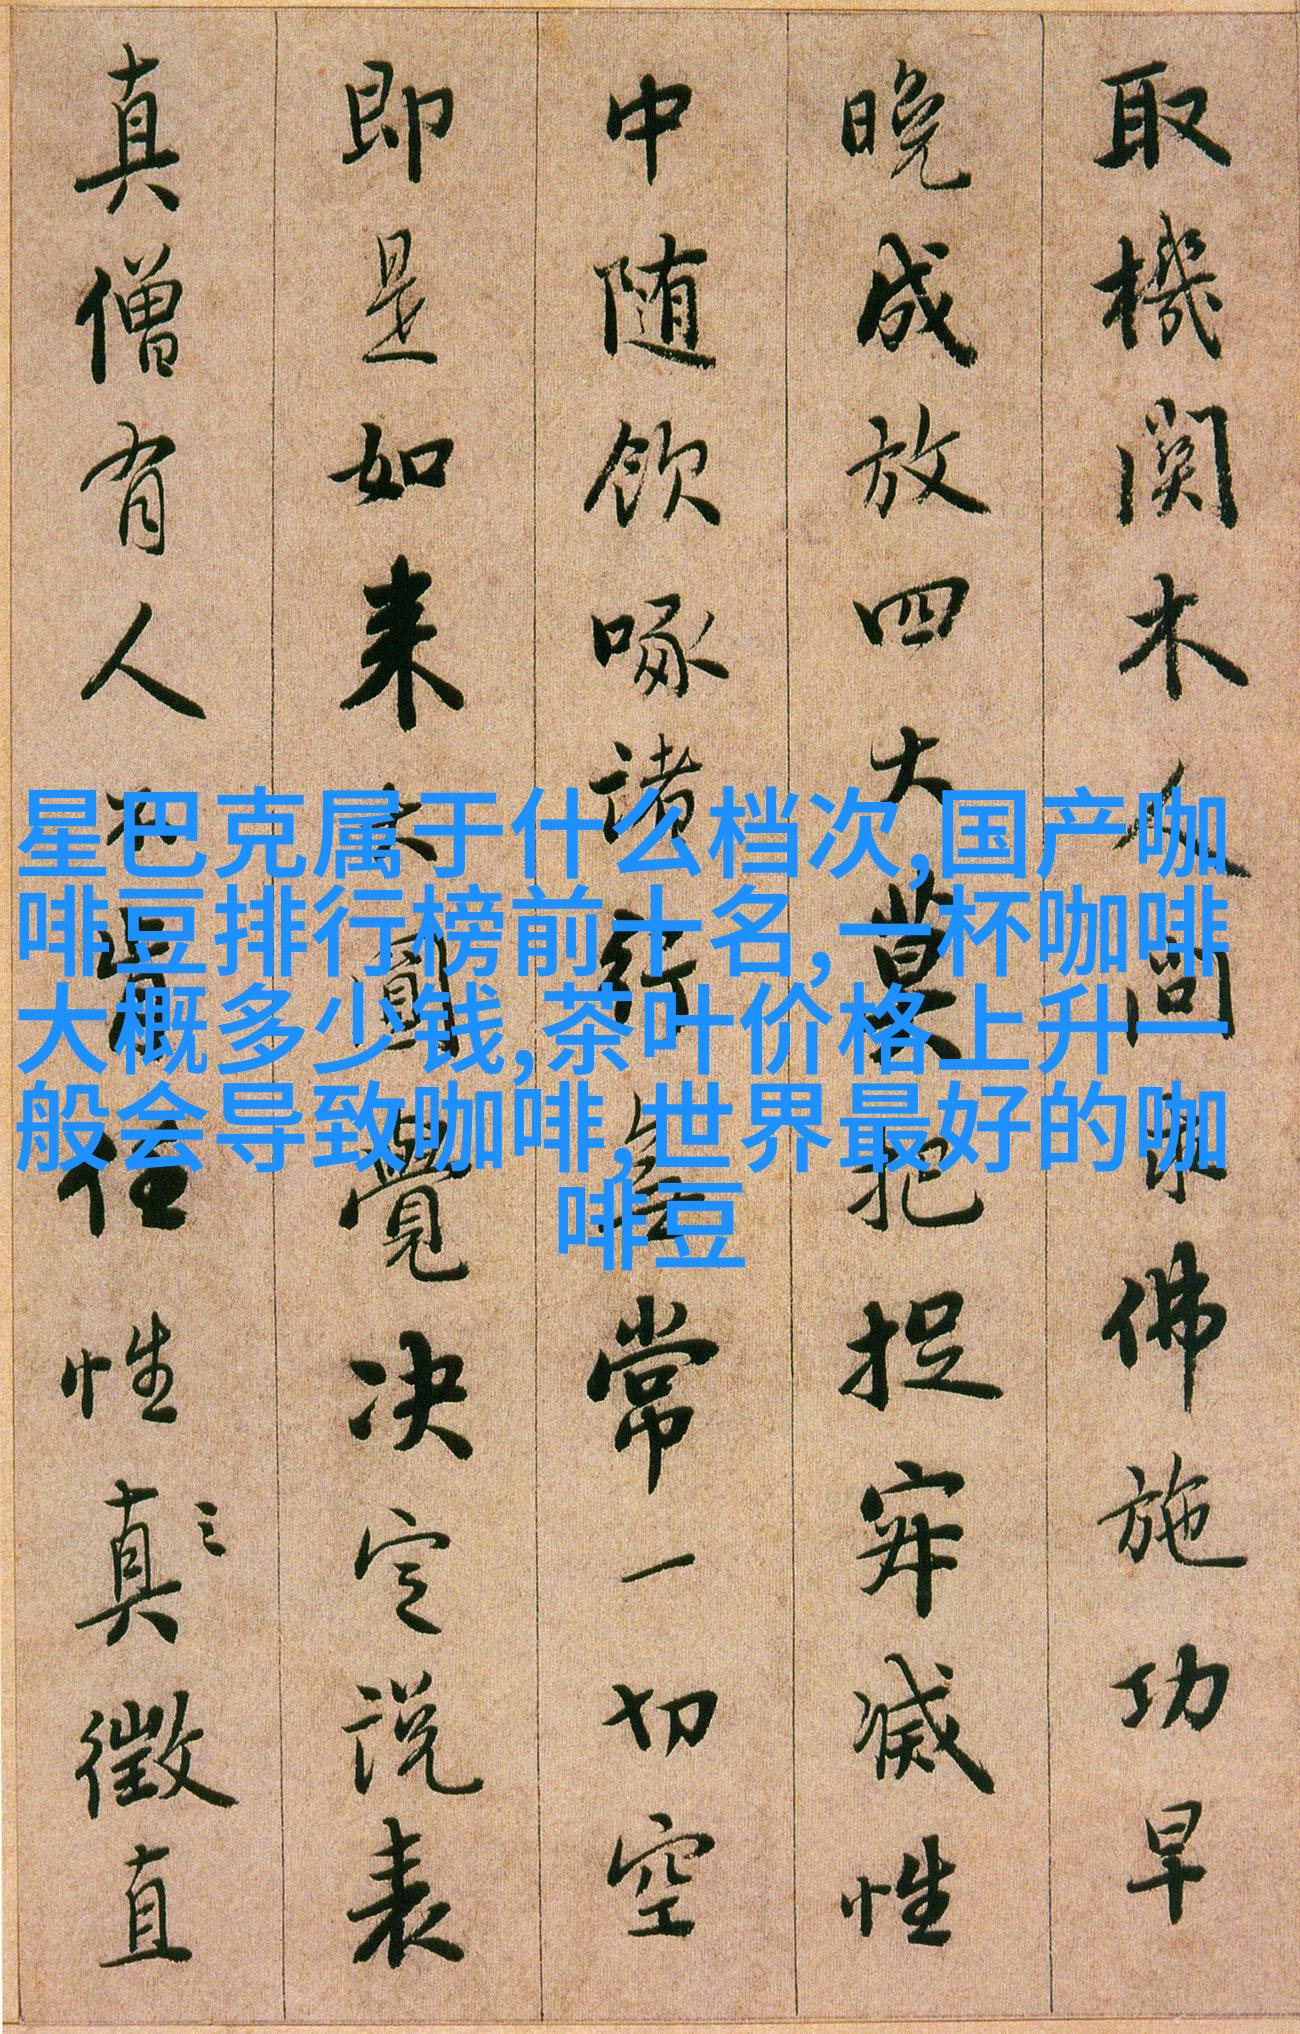 取機関木人問求佛施功早
晚成放四大莫把捉寂滅性
中随飲啄諸行無常一切空
即是如来大圓覺决定説表
真僧有人不肯任性真徵直
星巴克属于什么档次,国产咖
啡豆排行榜前十名,一杯咖啡
大概多少钱,茶叶价格上升一
般会导致咖啡,世界最好的咖
啡豆